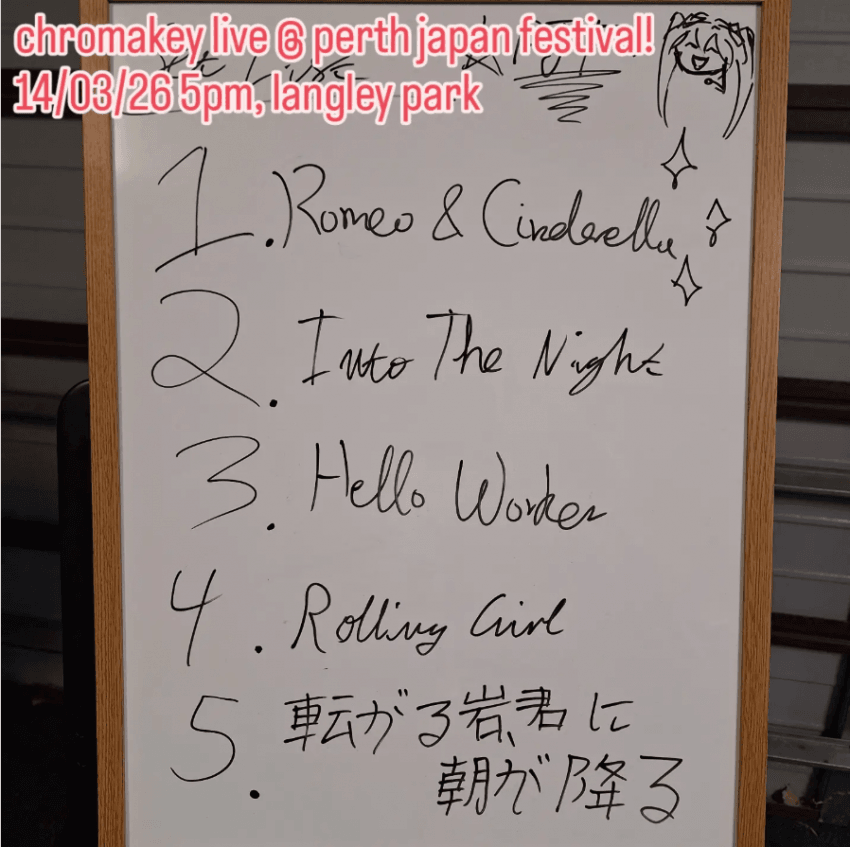 chromakey live @ perth japan festival!
14/03/26 5pm, langley park
Set List
1. Romeo & Cinderella
2. Into The Night
3. Hello Worker
4. Rolling Girl
5. 転がる岩、君に
朝が降る